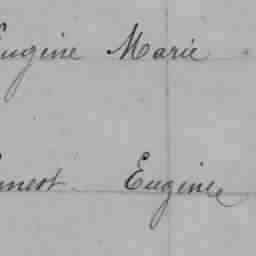 Eugène Marie
Ernest Eugène